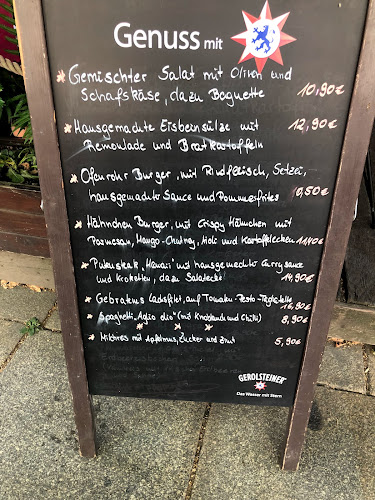 Genuss mit
Gemischter Salat mit Oliven und
Schafskäse, dazu Baguette 10,90€
Hausgemachte Eisbeinsülze mit 12,90€
Remoulade und Bratkartoffeln
Ofenrohr Burger, mit Rindfleisch, Setzei,
hausgemachte Sauce und Pommesfrites 10,50€
Hähnchen Burger, mit Crispy Hähnchen mit
Parmesan, Mango-Chutney, und Kartoffelecken 11,40€
Putensteak "Hawaii" mit hausgemachte Currysauce
und Kroketten, dazu Salatecke! 14,90€
Gebratenes Lachsfilet, auf Tomaten-Pesto-Tagliatelle
16,90€
Spaghetti "Aglio olio" (mit Knoblauch und Chili) 8,90€
Milchreis mit Apfelmus, Zucker und Zimt 5,90€
GEROLSTEINER
Das Wasser mit Stern